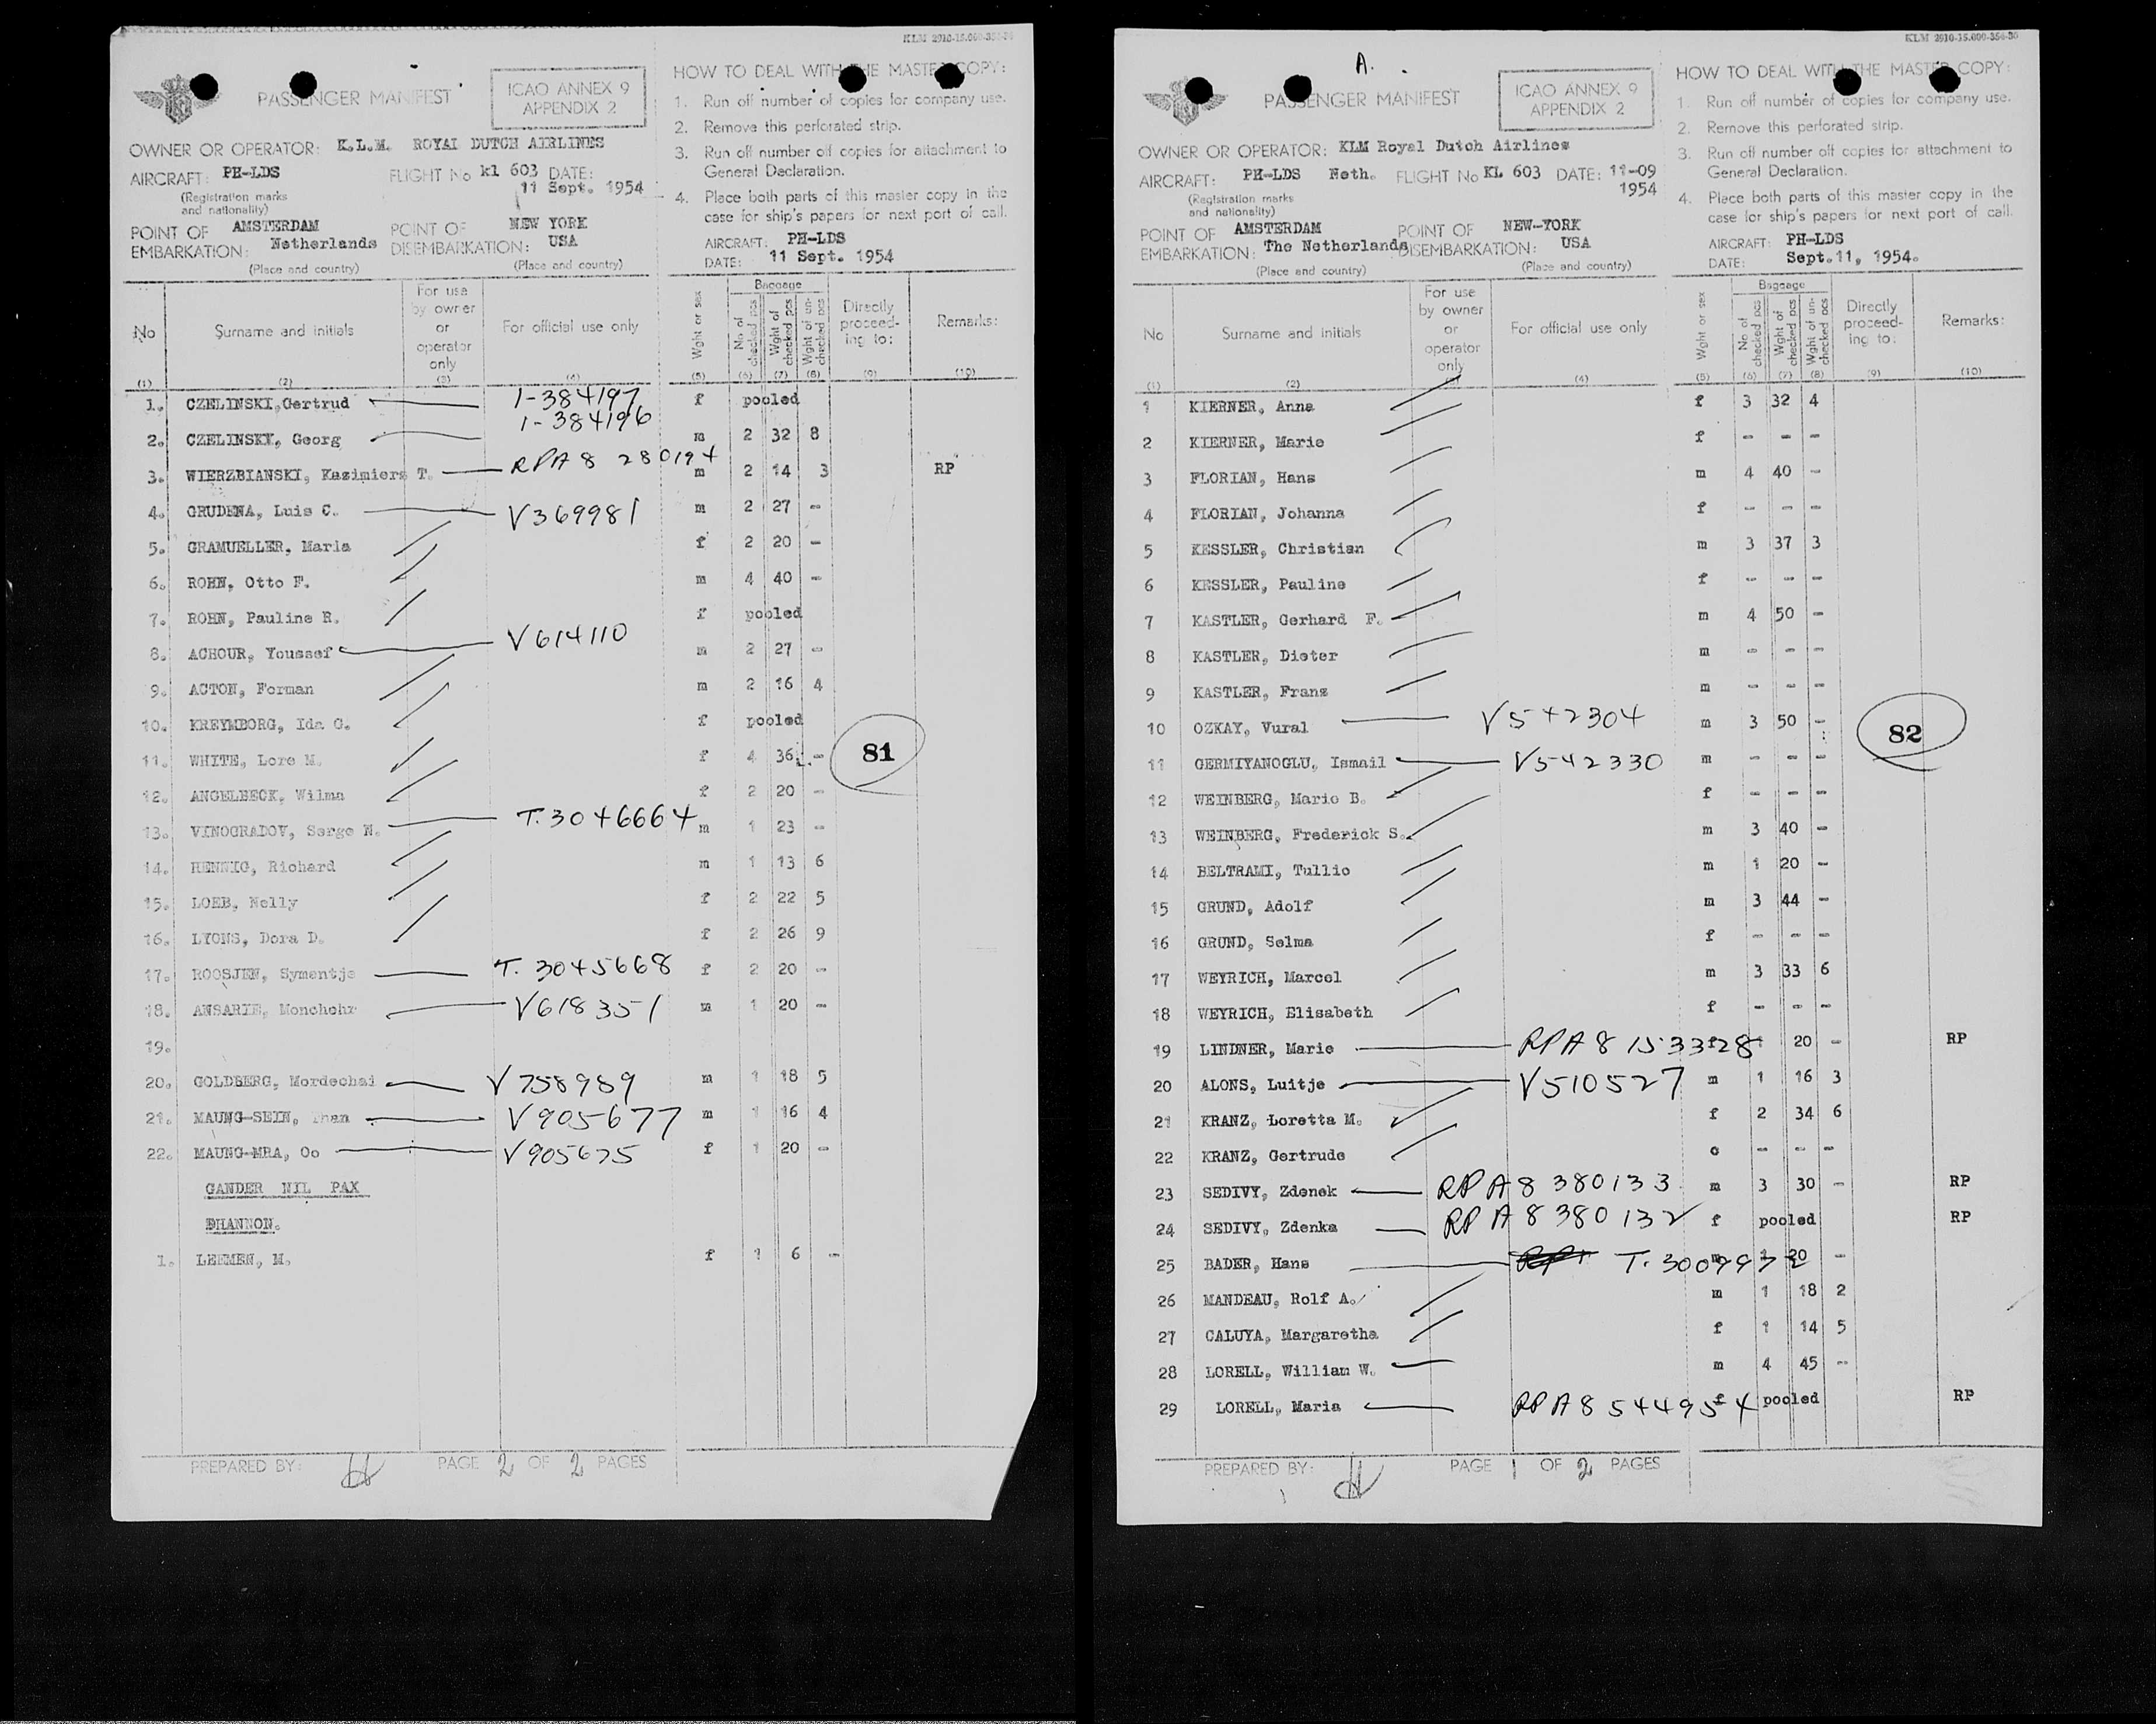 KLM 2910-15.000-354-36
PASSENGER MANIFEST
ICAO ANNEX 9
APPENDIX 2
OWNER OR OPERATOR: K.L.M. ROYAL DUTCH AIRLINES
AIRCRAFT: PH-LDS FLIGHT No kl 603 DATE: 11 Sept. 1954
(Registration marks and nationality)
POINT OF EMBARKATION: AMSTERDAM Netherlands
POINT OF DISEMBARKATION: NEW YORK USA
(Place and country) (Place and country)
HOW TO DEAL WITH THE MASTER COPY:
1. Run off number of copies for company use.
2. Remove this perforated strip.
3. Run off number off copies for attachment to
General Declaration.
4. Place both parts of this master copy in the
case for ship's papers for next port of call.
AIRCRAFT: PH-LDS
DATE: 11 Sept. 1954
No Surname and initials For use by owner or operator only For official use only Wght or sex Baggage No of checked pcs Wght of checked pcs Wght of un-checked pcs Directly proceed-ing to: Remarks:
(1) (2) (3) (4) (5) (6) (7) (8) (9) (10)
1. CZELINSKI, Gertrud 1-384197 f pooled
2. CZELINSKY, Georg 1-384196 m 2 32 8
3. WIERZBIANSKI, Kazimierz T. RPA8 280194 m 2 14 3 RP
4. GRUDENA, Luis C. V369981 m 2 27 -
5. GRAMUELLER, Maria f 2 20 -
6. ROHN, Otto F. m 4 40 -
7. ROHN, Pauline R. f pooled
8. ACHOUR, Youssef V614110 m 2 27 -
9. ACTON, Forman m 2 16 4
10. KREYMBORG, Ida G. f pooled
11. WHITE, Lore M. f 4 36 -
81
12. ANGELBECK, Wilma f 2 20 -
13. VINOGRADOV, Serge N. T.3046664 m 1 23 -
14. HENNIG, Richard m 1 13 6
15. LOEB, Nelly f 2 22 5
16. LYONS, Dora D. f 2 26 9
17. ROOSJEN, Symentje T. 3045668 f 2 20 -
18. ANSARIE, Monchehr V618351 m 1 20 -
19.
20. GOLDBERG, Mordechai V758989 m 1 18 5
21. MAUNG-SEIN, Than V905677 m 1 16 4
22. MAUNG-MRA, Oo V905675 f 1 20 -
GANDER NIL PAX
SHANNON.
1. LEEMEN, M. f 1 6 -
PREPARED BY: PAGE 2 OF 2 PAGES
KLM 2910-15.000-354-36
A.
PASSENGER MANIFEST
ICAO ANNEX 9
APPENDIX 2
OWNER OR OPERATOR: KLM Royal Dutch Airlines
AIRCRAFT: PH-LDS Neth. FLIGHT No KL 603 DATE: 11-09 1954
(Registration marks and nationality)
POINT OF EMBARKATION: AMSTERDAM The Netherlands
POINT OF DISEMBARKATION: NEW-YORK USA
(Place and country) (Place and country)
HOW TO DEAL WITH THE MASTER COPY:
1. Run off number of copies for company use.
2. Remove this perforated strip.
3. Run off number off copies for attachment to
General Declaration.
4. Place both parts of this master copy in the
case for ship's papers for next port of call.
AIRCRAFT: PH-LDS
DATE: Sept.11, 1954.
No Surname and initials For use by owner or operator only For official use only Wght or sex Baggage No of checked pcs Wght of checked pcs Wght of un-checked pcs Directly proceed-ing to: Remarks:
(1) (2) (3) (4) (5) (6) (7) (8) (9) (10)
1 KIERNER, Anna f 3 32 4
2 KIERNER, Marie f - - -
3 FLORIAN, Hans m 4 40 -
4 FLORIAN, Johanna f - - -
5 KESSLER, Christian m 3 37 3
6 KESSLER, Pauline f - - -
7 KASTLER, Gerhard F. m 4 50 -
8 KASTLER, Dieter m - - -
9 KASTLER, Franz m - - -
10 OZKAY, Vural V542304 m 3 50 -
82
11 GERMIYANOGLU, Ismail V542330 m - - -
12 WEINBERG, Marie B. f - - -
13 WEINBERG, Frederick S. m 3 40 -
14 BELTRAMI, Tullio m 1 20 -
15 GRUND, Adolf m 3 44 -
16 GRUND, Selma f - - -
17 WEYRICH, Marcel m 3 33 6
18 WEYRICH, Elisabeth f - - -
19 LINDNER, Marie RPA8 153328 f 1 20 - RP
20 ALONS, Luitje V510527 m 1 16 3
21 KRANZ, Loretta M. f 2 34 6
22 KRANZ, Gertrude c - - -
23 SEDIVY, Zdenek RPA8 380133 m 3 30 - RP
24 SEDIVY, Zdenka RPA8380132 f pooled RP
25 BADER, Hans T. 300 m 1 20 -
26 MANDEAU, Rolf A. m 1 18 2
27 CALUYA, Margaretha f 1 14 5
28 LORELL, William W. m 4 45 -
29 LORELL, Maria RPA8 544954 f pooled RP
PREPARED BY: PAGE 1 OF 2 PAGES